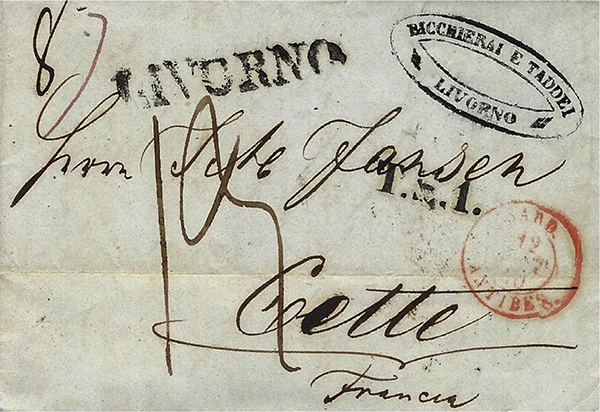 8
LIVORNO
BICCHIERAI E TADDEI
LIVORNO
Herrn Jansen
T.S.1.
SARD.
19
ANTIBES
Cette
Francia